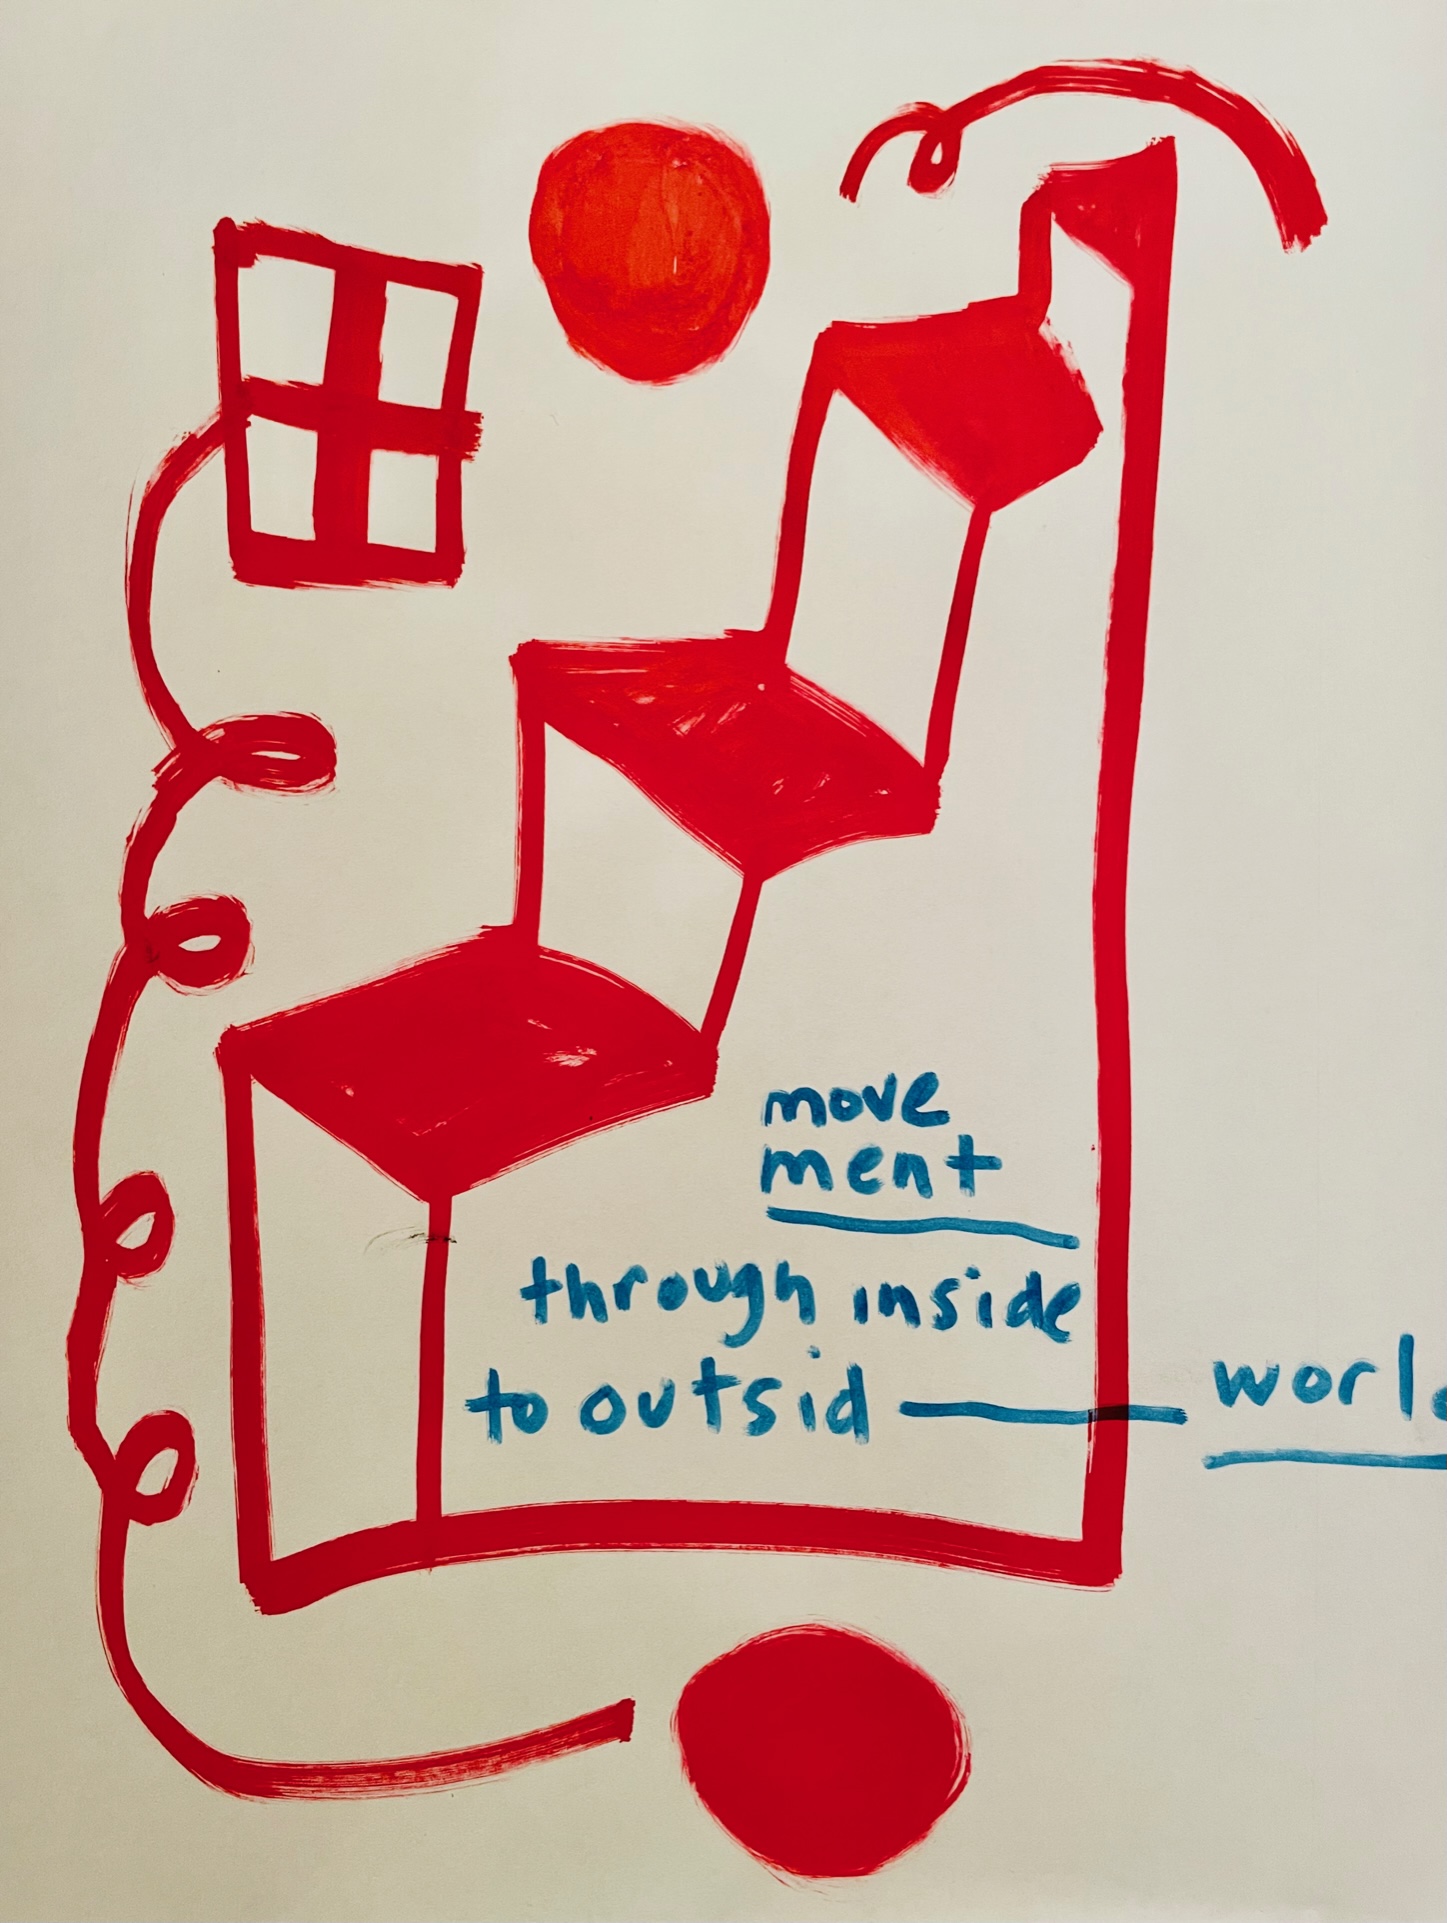 move
ment
through inside
to outsid — worl